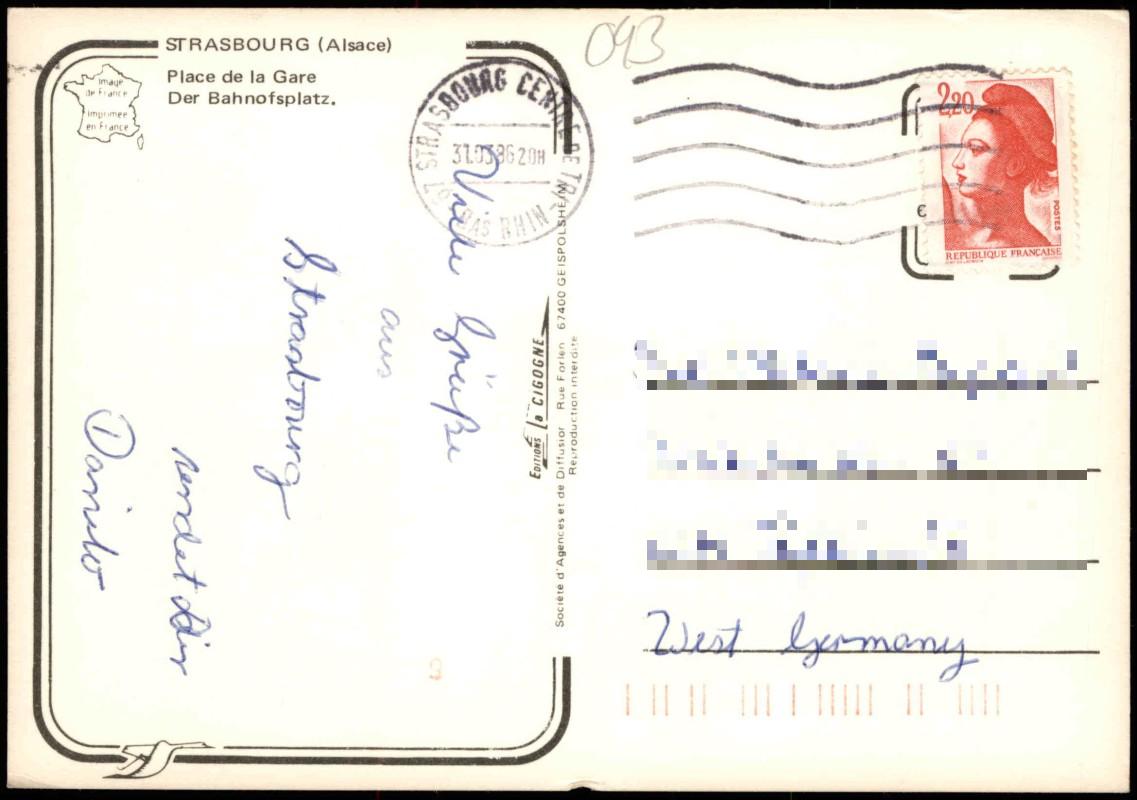 STRASBOURG (Alsace)
Place de la Gare
Der Bahnofsplatz.
Image
de France
Imprimée
en France
093
STRASBOURG CENTRE DE TRI
31.03.86 20H
67 BAS RHIN
2,20
POSTES
REPUBLIQUE FRANÇAISE
€
Viele Grüße
aus
Strasbourg
sendet dir
Danilo
EDITIONS la CIGOGNE
Société d'Agences et de Diffusion Rue Forlen 67400 GEISPOLSHEIM
Reproduction interdite
West Germany
9